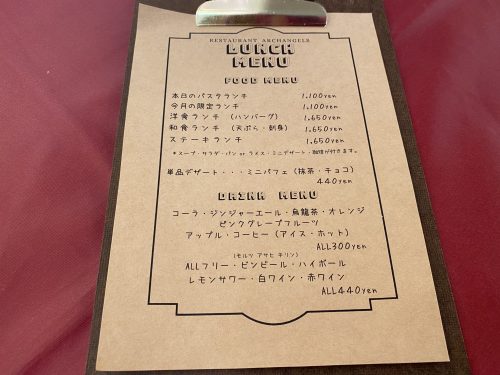 RESTAURANT ARCHANGELS
LUNCH
MENU
FOOD MENU
本日のパスタランチ 1,100yen
今月の限定ランチ 1,100yen
洋食ランチ (ハンバーグ) 1,650yen
和食ランチ (天ぷら・刺身) 1,650yen
ステーキランチ 1,650yen
*スープ・サラダ・パン or ライス・ミニデザート・珈琲が付きます。
単品デザート・・・ミニパフェ(抹茶・チョコ)
440yen
DRINK MENU
コーラ・ジンジャーエール・烏龍茶・オレンジ
ピンクグレープフルーツ
アップル・コーヒー(アイス・ホット)
ALL300yen
(モルツ アサヒ キリン)
ALLフリー・ビンビール・ハイボール
レモンサワー・白ワイン・赤ワイン
ALL440yen